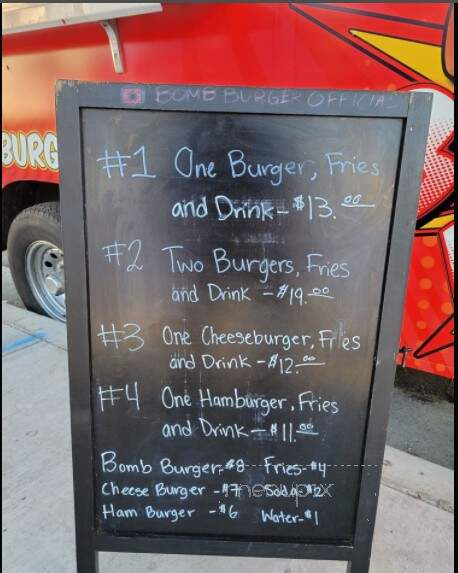 BOMB BURGER OFFICIAL
BURG
#1 One Burger, Fries
and Drink - $13.00
#2 Two Burgers, Fries
and Drink - $19.00
#3 One Cheeseburger, Fries
and Drink - $12.00
#4 One Hamburger, Fries
and Drink - $11.00
Bomb Burger - $8 Fries - $4
Cheese Burger - $7 Soda - $2
Ham Burger - $6 Water - $1